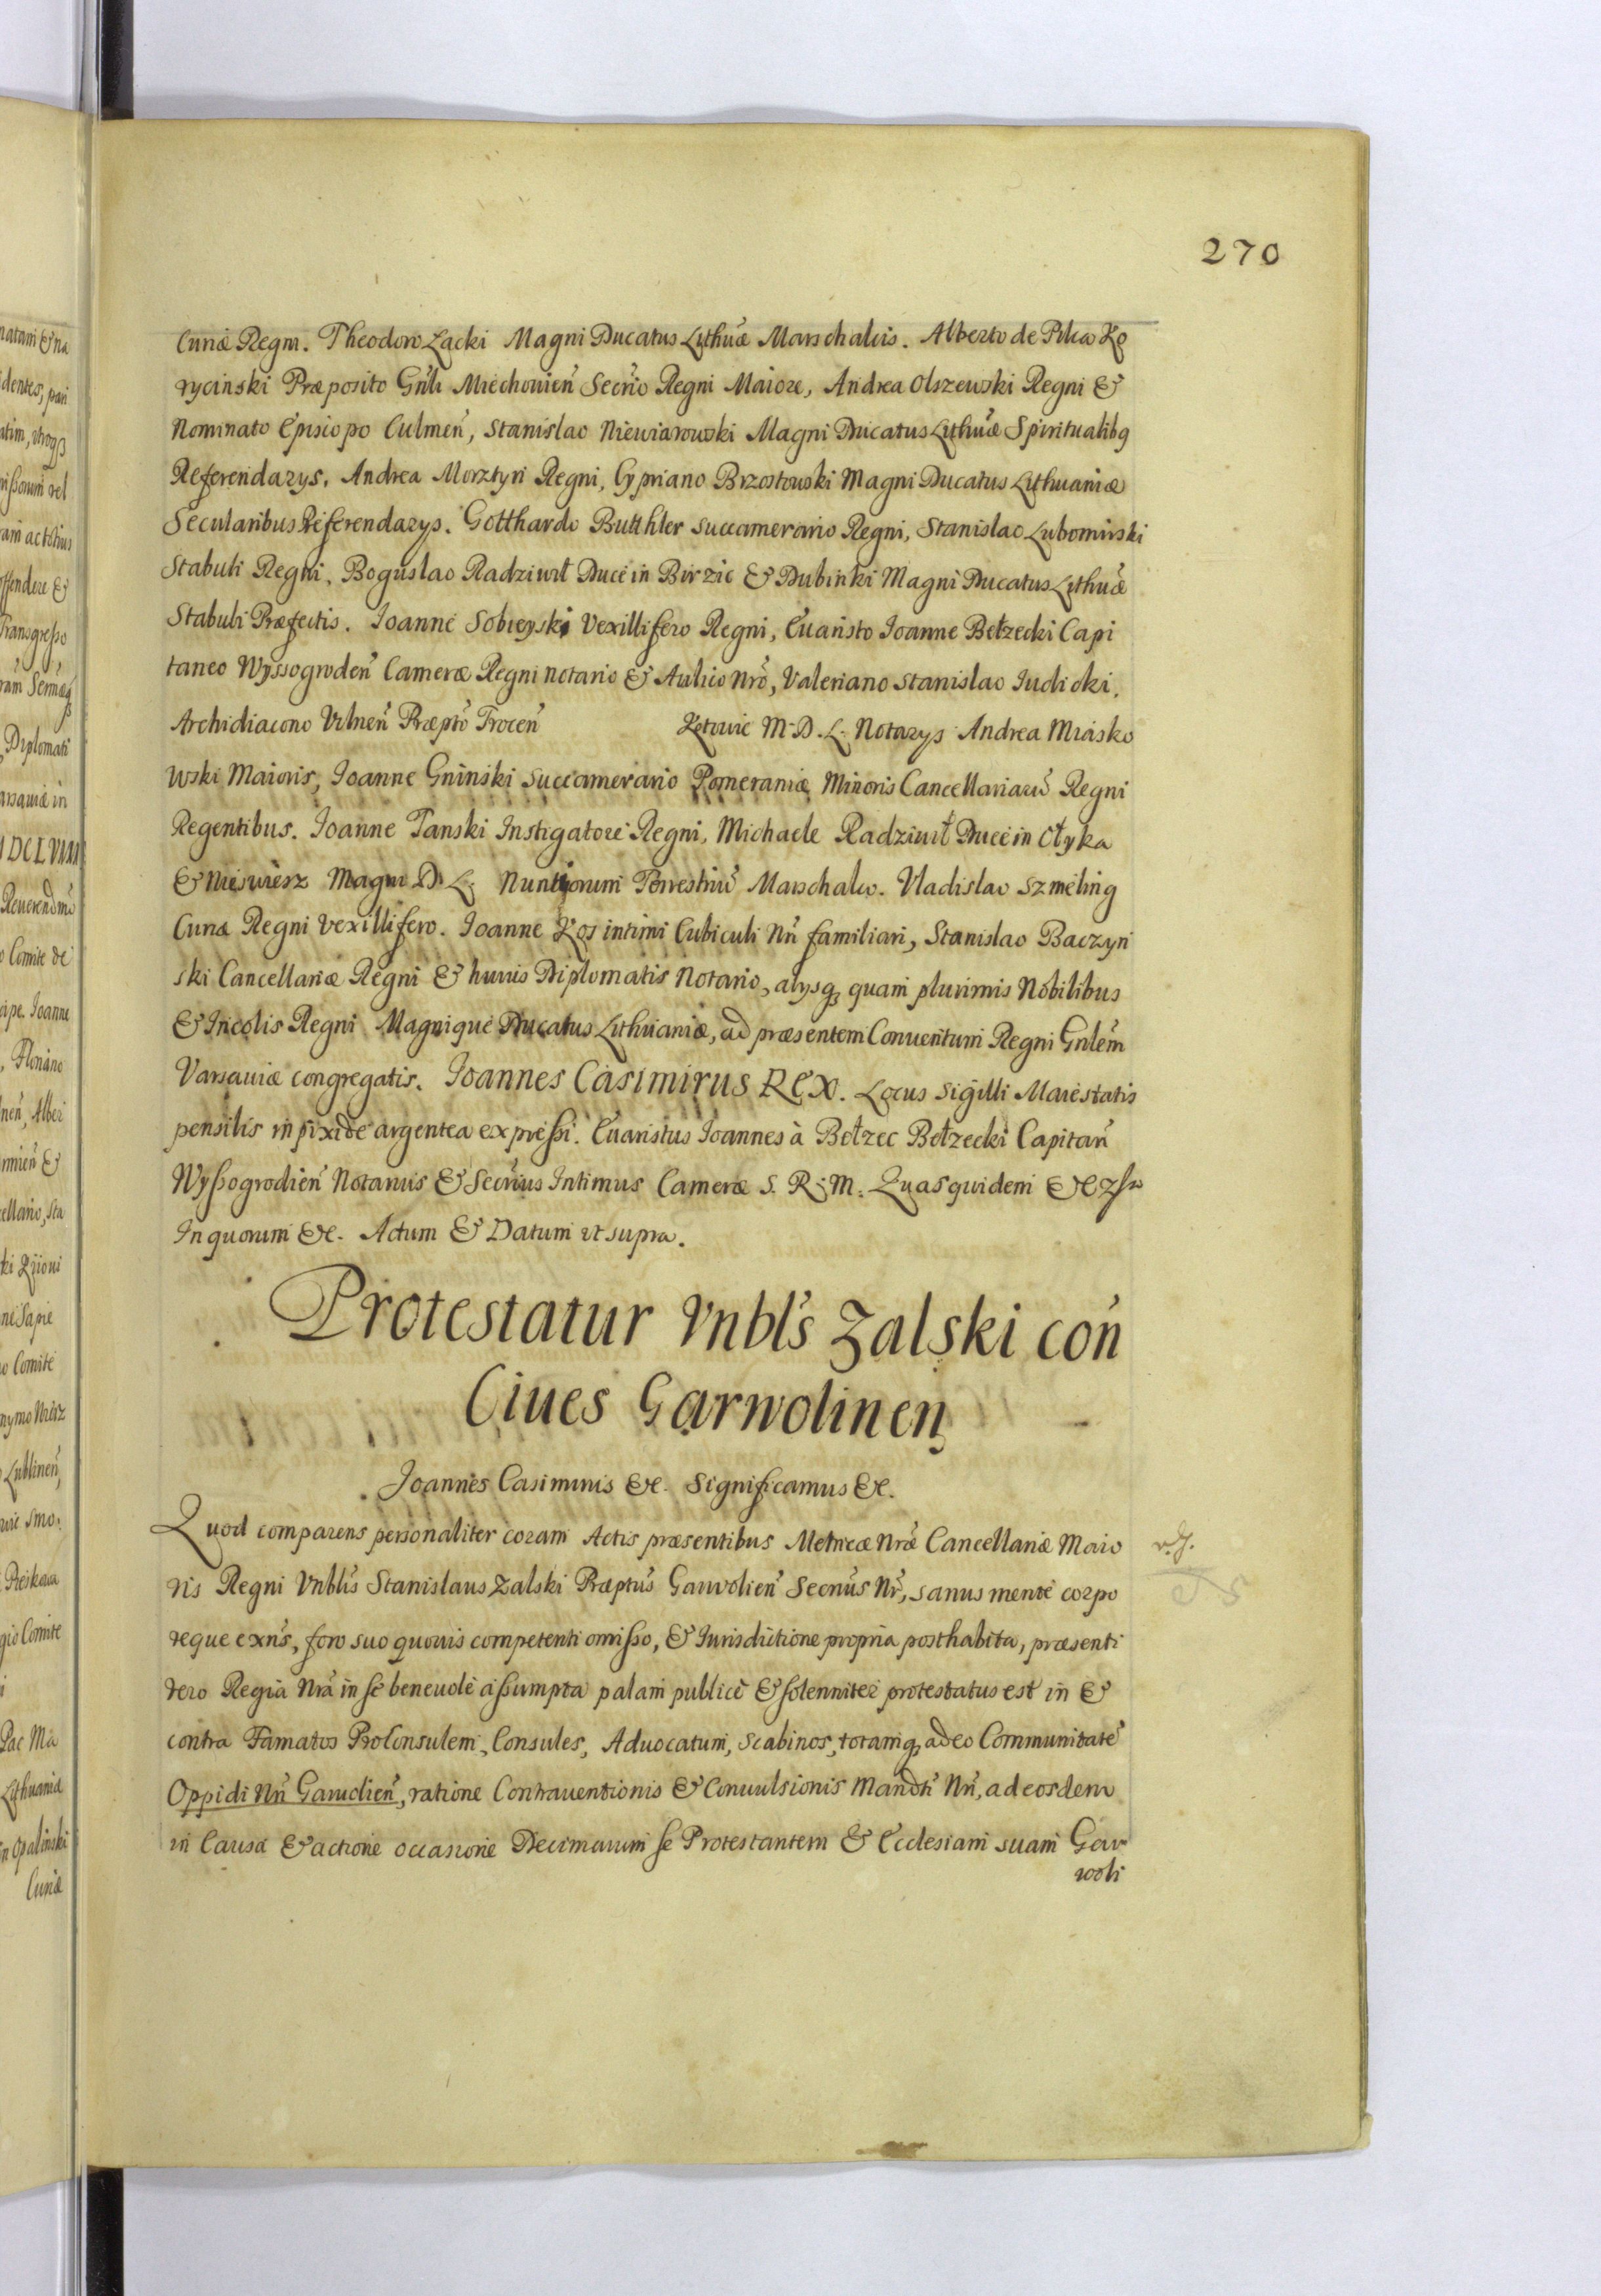 270
Curiæ Regni. Theodoro Lacki Magni Ducatus Lithuæ Marschalcis. Alberto de Pilca Ko
rycinski Præposito Gnli Miechouien Secrio Regni Maiore, Andrea Olszewski Regni &
Nominato Episcopo Culmen, Stanislao Niewiarowski Magni Ducatus Lithuæ Spiritualibq
Referendarys. Andrea Morztyn Regni, Cypriano Brzostowski Magni Ducatus Lithuaniæ
Secularibus Referendarys. Gotthardo Butthler Succamerario Regni, Stanislao Lubomirski
Stabuli Regni, Boguslao Radziwił Duce in Birzie & Dubinki Magni Ducatus Lithuæ
Stabuli Præfectis. Joanne Sobieyski Vexillifero Regni, Euaristo Joanne Bełzecki Capi
taneo Wyssogroden Cameræ Regni notario & Aulico Nro, Valeriano Stanislao Iudicki,
Archidiacono Vilnen Præpto Trocen Kotowic M. D. L. Notarys Andrea Miasko
wski Maioris, Joanne Gninski Succamerario Pomeraniæ Minoris Cancellariaru Regni
Regentibus. Joanne Tanski Instigatore Regni, Michaele Radziwił Duce in Ołyka
& Nieswiesz Magni D. L. Nuntiorum Terrestriu Marschalco. Vladislao Szmeling
Curiæ Regni vexillifero. Joanne Kos intimi Cubiculi Nri familiari, Stanislao Baczyn
ski Cancellariæ Regni & huius Diplomatis Notario, alysq quam plurimis Nobilibus
& Incolis Regni Magnique Ducatus Lithuaniæ, ad præsentem Conuentum Regni Gnlem
Varsauiæ congregatis. Joannes Casimirus REX. Locus Sigilli Maiestatis
pensilis in pixide argentea expressi. Euaristus Joannes à Bełzec Bełzecki Capitan
Wyssogrodien Notarius & Secrius Intimus Cameræ S. R. M. Quasquidem &c
In quorum &c. Actum & Datum vt supra.
Protestatur Vnbls Zalski con
Ciues Garwolinen
Joannes Casimirus &c. Significamus &c.
Quod comparens personaliter coram Actis præsentibus Metricæ Nræ Cancellariæ Maio
ris Regni Vnblis Stanislaus Zalski Præptus Garvolien Secrius Nr, sanus mente corpo
reque exns, foro suo quouis competenti omisso, & Iurisdictione propria posthabita, præsenti
vero Regia Nra in se beneuole assumpta palam publicè & solenniter protestatus est in &
contra Famatos Proconsulem, Consules, Aduocatum, Scabinos, totamq adeo Communitate
Oppidi Nri Garuolien, ratione Contrauentionis & Conuulsionis Mandti Nri, ad eosdem
in Causa & actione occasione Decimarum se Protestantem & Ecclesiam suam Gar
woli